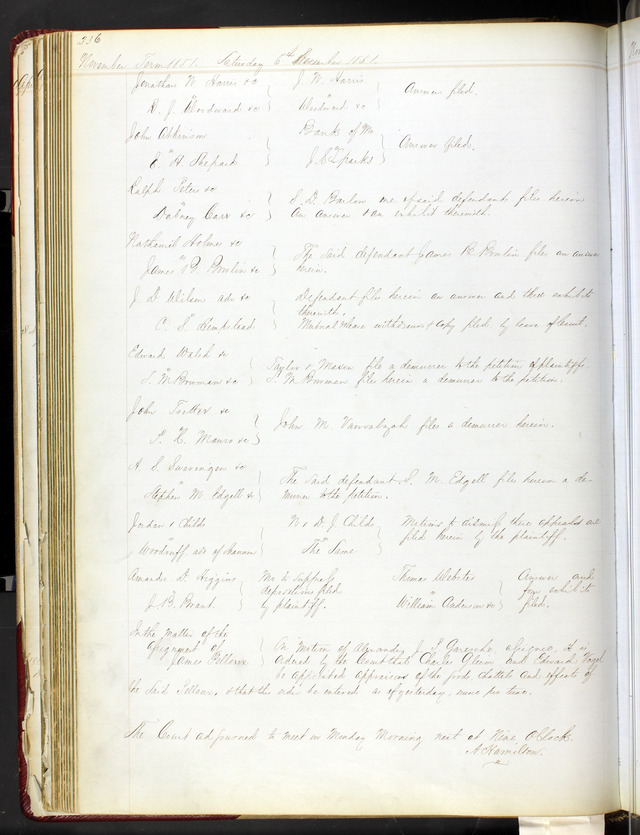 336
November Term 1851. Saturday 6th December 1851.
Jonathan W. Harris &c J. W. Harris
Answer filed.
R. J. Woodward &c Woodward &c
John Atkinson Bank of Mo
Answer filed.
E. H. Shepard J. C. Sparks
Ralph Peter &c
S. D. Barlow one of said defendants files herein
Dabney Carr &c an answer & an exhibit therewith.
Nathaniel Holmes &c
The said defendant James B. Bowlin files an answer
James B. Bowlin &c herein.
J. D. Wilson adr &c Defendant files herein an answer and three exhibits
therewith.
C. S. Hempstead withdrawn & copy filed by leave of Court.
Edward Walsh &c
Taylor & Mason file a demurrer to the petition of plaintiffs.
S. M. Bowman &c S. M. Bowman files herein a demurrer to the petition.
John Trotter &c
John M. files a demurrer herein.
P. H. Mauro &c
A. S. Swearengen &c
The said defendant S. M. Edgell files herein a de-
Stephen M. Edgell &c murrer to the petition.
Jordan & Childs N. & D. J. Childs Motions to dismiss these appeals are
filed herein by the plaintiff.
Woodruff adr of The Same
D. Higgins Mo to suppress Thomas Webster Answer and
depositions filed four exhibits
J. B. Brant by plaintiff. William Anderson &c filed.
In the matter of the
Assignment of On motion of Alexander J. P. Garesche, assignee, it is
James ordered by the Court that Charles Glenn and Edward
be appointed appraisers of the goods chattels and effects of
the said & that this order be entered as of yesterday, nunc pro tunc.
The Court adjourned to meet on Monday Morning next at Nine O'Clock.
A. Hamilton.